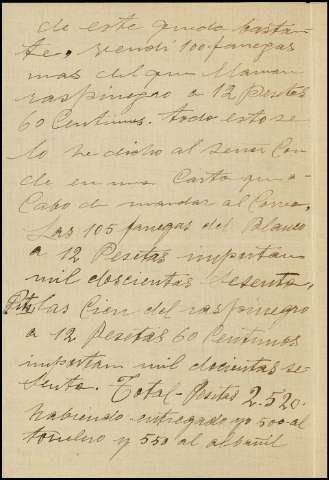 de este quedo bastan
te, vendí 100 fanegas
mas del que llaman
raspinegro a 12 pesetas
60 Centimos. todo esto se
lo he dicho al señor Con
de en una Carta que a-
Cabo de mandar al Correo,
Las 105 fanegas del Blanco
a 12 Pesetas importan
mil doscientas sesenta,
Pts las Cien del raspinegro
a 12 Pesetas 60 Centimos
importan mil docientas se
senta. Total - Pesetas 2.520.
habiendo entregado yo 500 al
tonelero y 550 al albañil